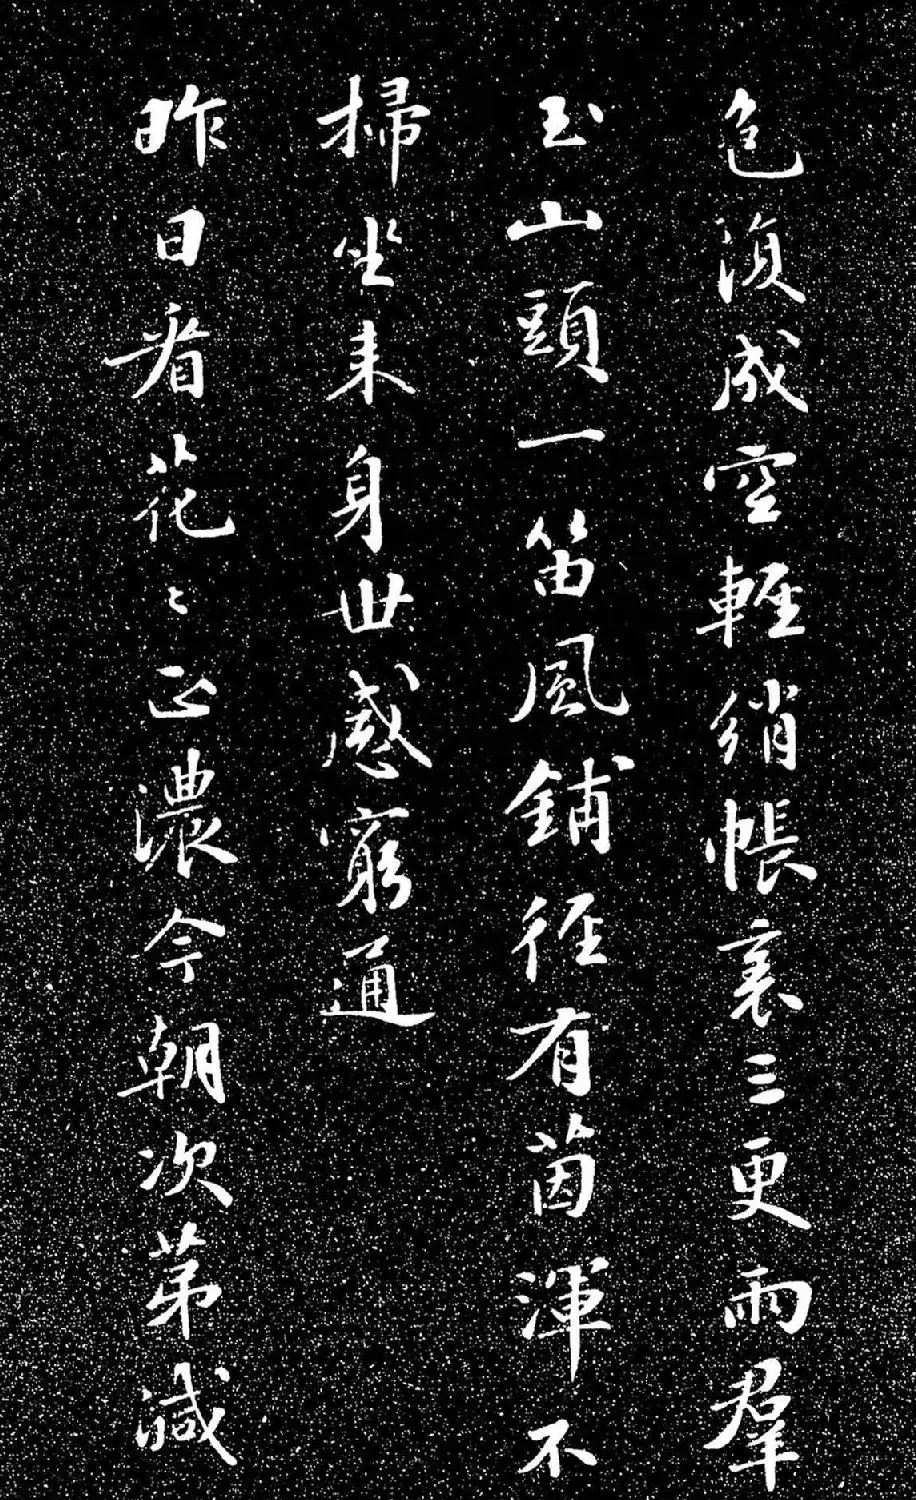 色湏成空輕綃帳裏三更雨羣
玉山頭一笛風鋪徑有茵渾不
掃坐来身世感窮通
昨日看花〻正濃今朝次第減